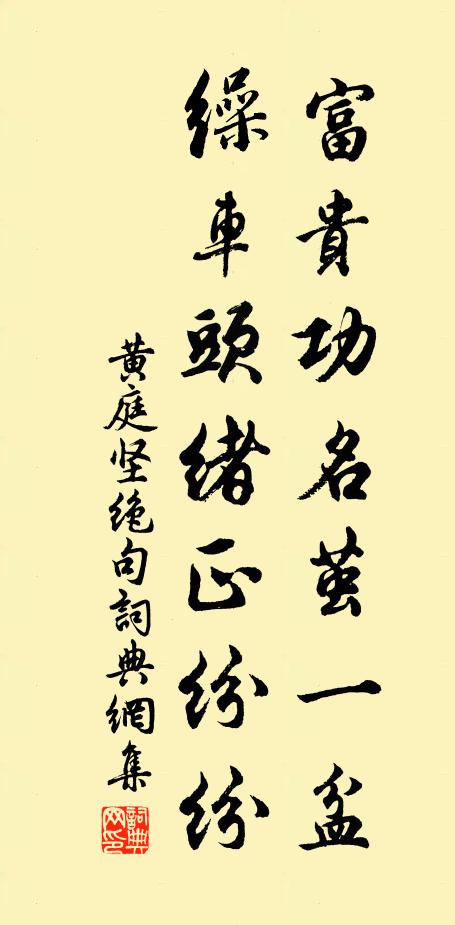 富貴功名茧一盆
繰車頭緒正紛紛
黄庭坚绝句詞典網集
詞典网印